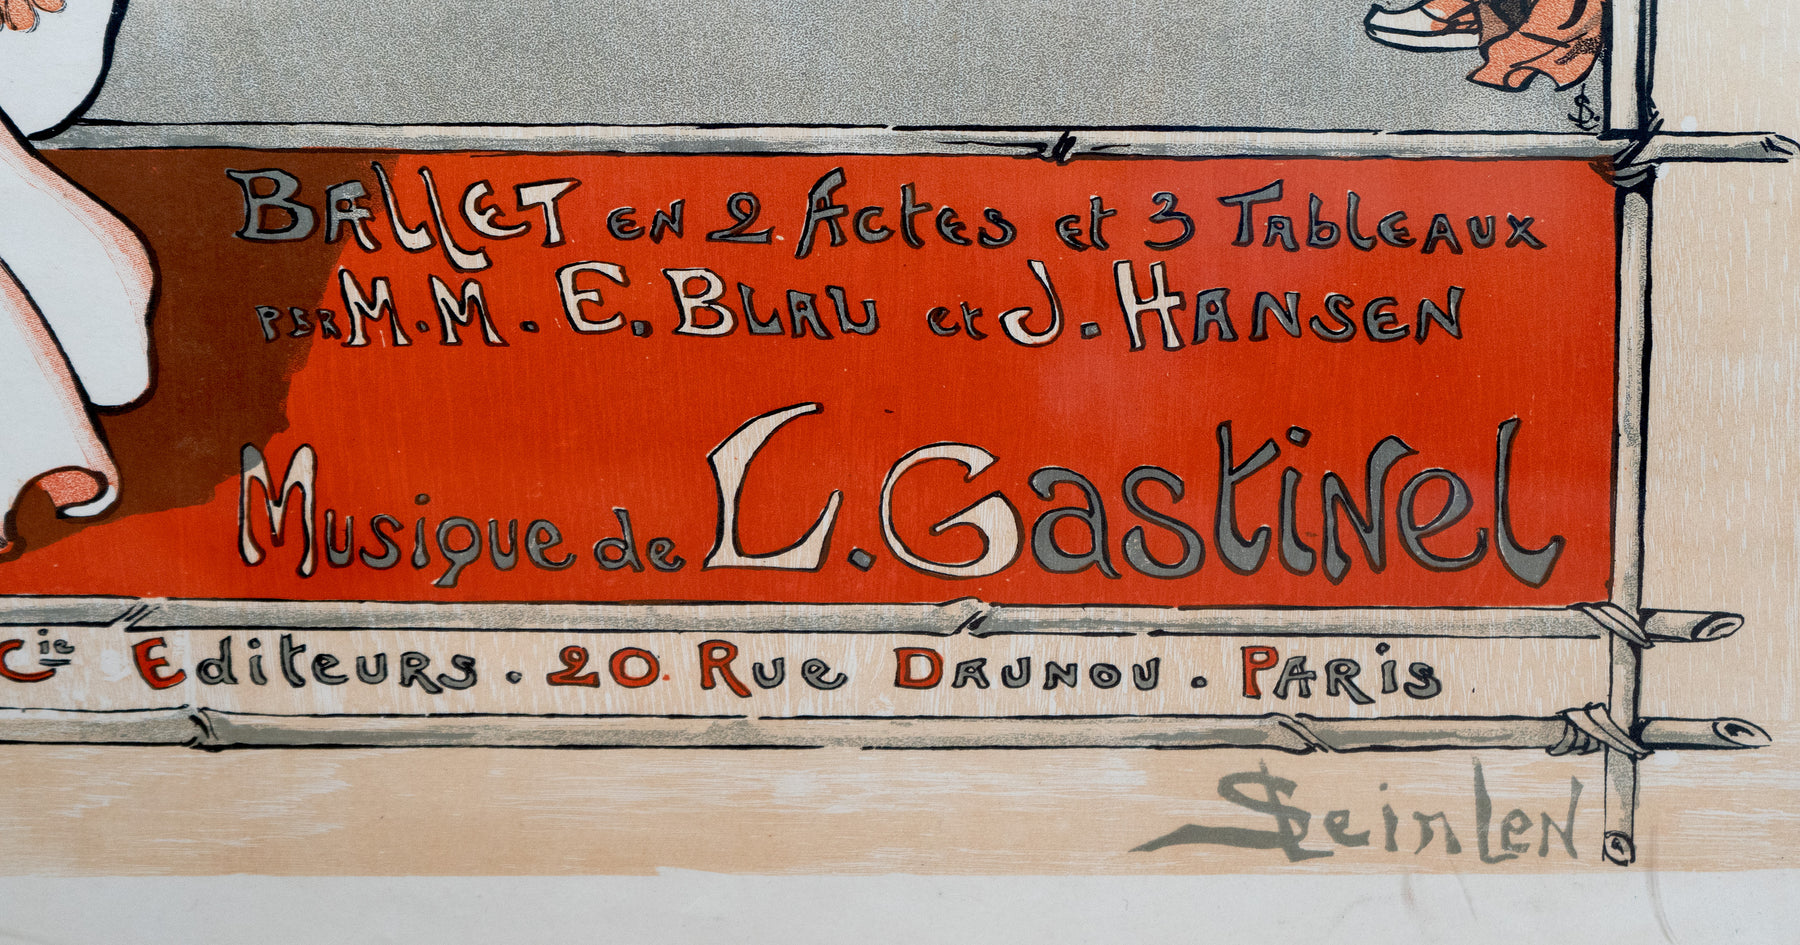 BALLET EN 2 ACTES et 3 TABLEAUX
PAR M.M. E. BLAU et J. HANSEN
Musique de L. Gastinel
Cie Editeurs. 20 Rue DAUNOU. PARIS
Steinlen